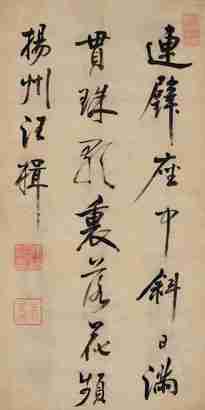 連璧座中斜日滿
貫珠歌裏落花頻
揚州汪楫